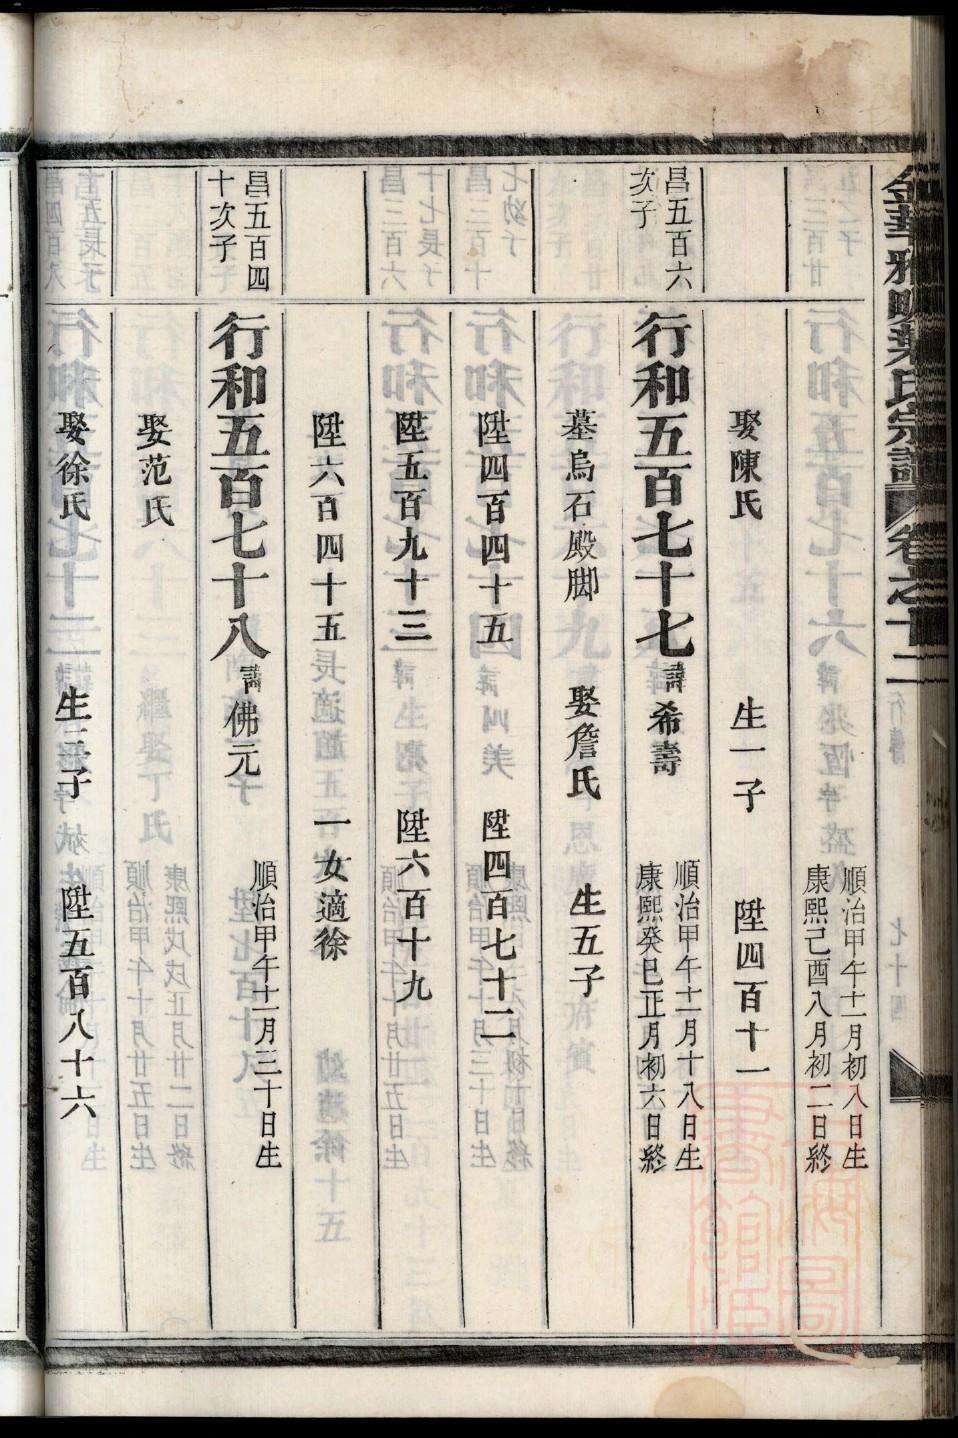 金華雅畈葉氏宗譜 卷之十二
順治甲午十一月初八日生
康熙己酉八月初二日終
娶陳氏 生一子 陞四百十一
昌五百六
次子
行和五百七十七 諱希壽
順治甲午十二月十八日生
康熙癸巳正月初六日終
墓烏石殿脚 娶詹氏 生五子
陞四百四十五 陞四百七十二
陞五百九十三 陞六百十九
陞六百四十五 一女適徐
昌五百四
十次子
行和五百七十八 諱佛元
順治甲午十一月三十日生
娶范氏
娶徐氏 生三子 陞五百八十六